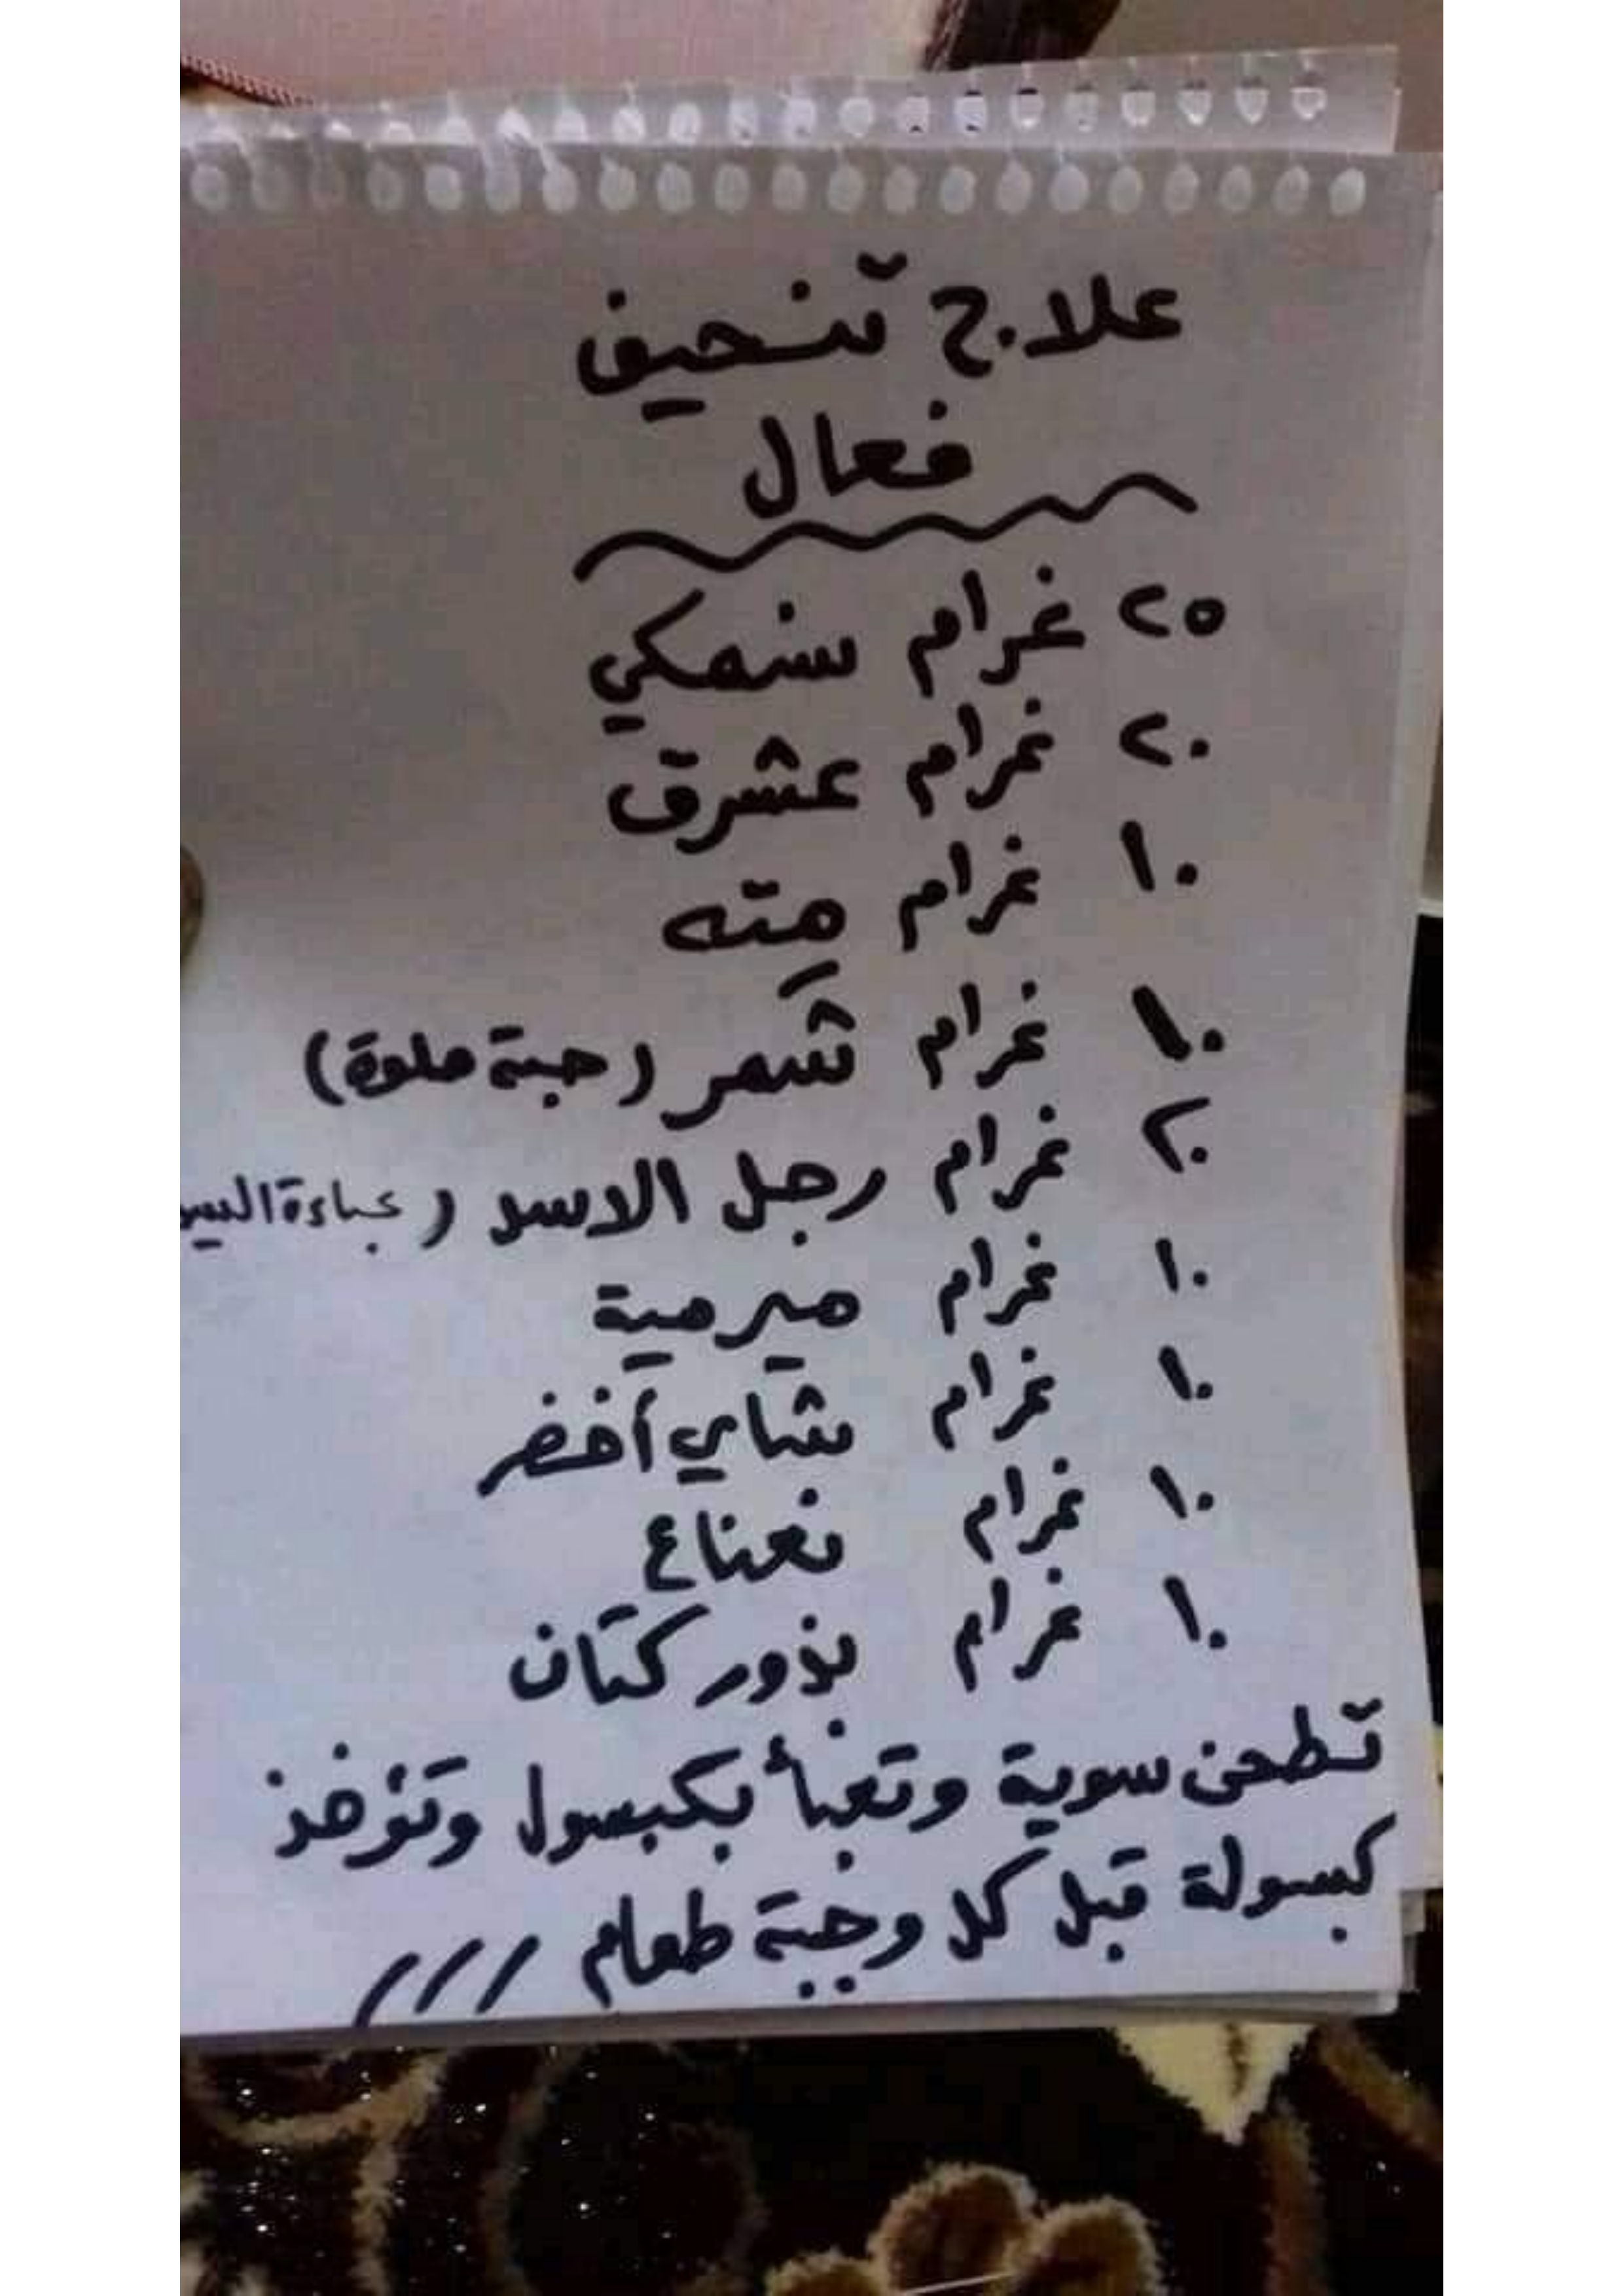 علاج تنحيف
فعال
٢٥ غرام سنمكي
٢٠ غرام عشرق
١٠ غرام مته
١٠ غرام شمر (حبة حلوة)
٢٠ غرام رجل الاسد (عباءة
١٠ غرام ميرمية
١٠ غرام شاي أخضر
١٠ غرام نعناع
١٠ غرام بذور كتان
تطحن سوية وتعبأ بكبسول وتؤخذ
كبسولة قبل كل وجبة طعام ///